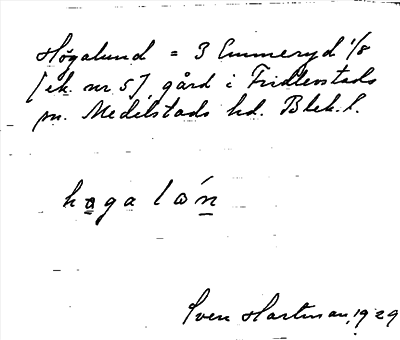 Högalund = 3 Emmeryd 1/8
[ek. nr 5] gård i Fridlevstads
sn. Medelstads hd. Blek. l.
haga lón
Sven Hartman, 1929